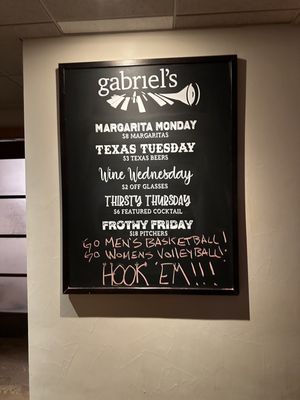 gabriel's
MARGARITA MONDAY
$8 MARGARITAS
TEXAS TUESDAY
$3 TEXAS BEERS
Wine Wednesday
$2 OFF GLASSES
THIRSTY THURSDAY
$6 FEATURED COCKTAIL
FROTHY FRIDAY
$18 PITCHERS
GO MEN'S BASKETBALL!
GO WOMENS VOLLEYBALL!
HOOK 'EM!!!